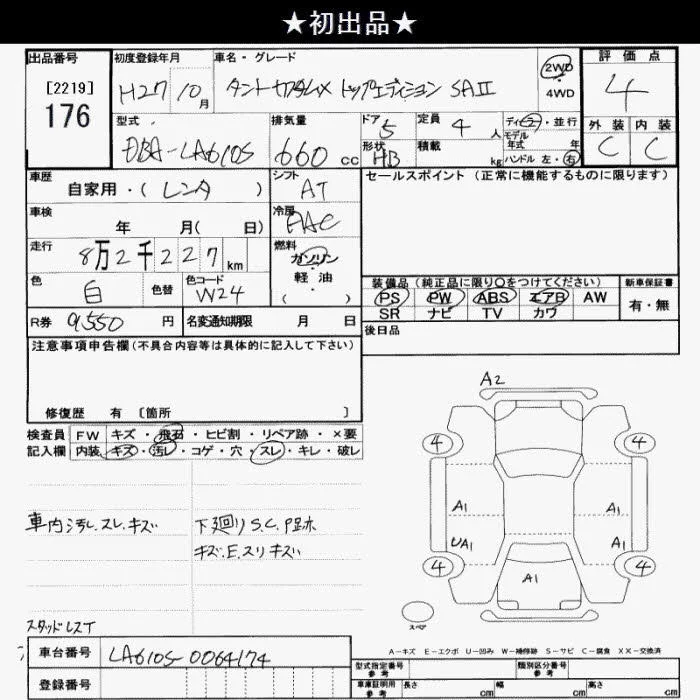 ★初出品★
出品番号
[2219]
176
初度登録年月
H27 10月
車名・グレード
タントカスタムX トップエディション SAII
2WD
・
4WD
評価点
4
型式
DBA-LA610S
排気量
660 cc
ドア 5
形状 HB
定員 4 人
積載 kg
ディ・並行
モデル年式 年
ハンドル 左・右
外装 内装
C C
車歴
自家用・(レンタ)
シフト
AT
セールスポイント(正常に機能するものに限ります)
車検
年 月( 日)
冷房
AAC
走行
8万2千227km
燃料
ガソリン
・
軽油
( )
色
白
色替
色コード
W24
装備品(純正品に限り○をつけてください)
PS PW ABS エアB AW
SR ナビ TV カワ
新車保証書
有・無
R券 9,550 円
名変通知期限 月 日
後日品
注意事項申告欄(不具合内容等は具体的に記入して下さい)
修復歴 有 〔箇所 〕
検査員
記入欄
FW キズ・飛石・ヒビ割・リペア跡・×要
内装 キズ・汚レ・コゲ・穴・スレ・キレ・破レ
車内汚レ.スレ.キズ
下廻りS.C.P跡
キズ.E.スリキズ
スタッドレスT
A2
4 4
A1 A1
UA1 A1
4 4
A1
スペア
A-キズ E-エクボ U-凹み W-補修跡 S-サビ C-腐食 XX-交換済
車台番号 LA610S-0064174
登録番号
型式指定番号
参考
類別区分番号
参考
車庫証明用
参考
長さ cm 幅 cm 高さ cm